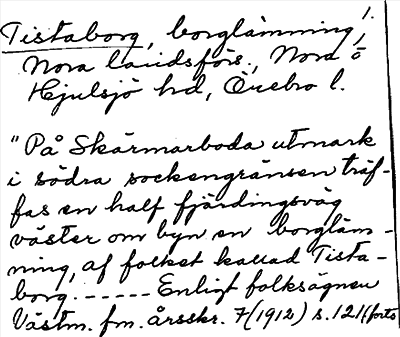 1.
Tistaborg, borglämning,
Nora landsförs., Nora o
Hjulsjö hd, Örebro l.
"På Skärmarboda utmark
i södra sockengränsen träf-
fas en half fjärdingsväg
väster om byn en borgläm-
ning, af folket kallad Tista-
borg. ----- Enligt folksägnen
Västm. fm. årsskr. 7 (1912) s. 121 (forts